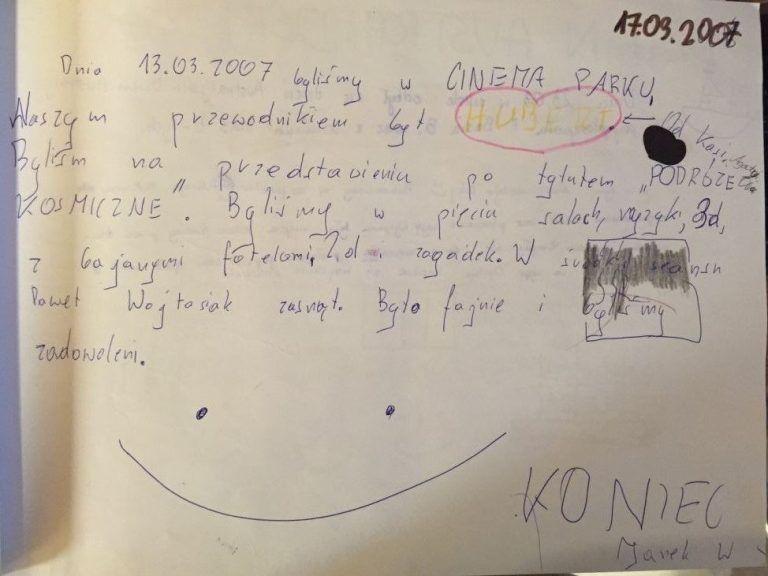 17.03.2007
Dnia 13.03.2007 byliśmy w CINEMA PARKU,
Naszym przewodnikiem był HUBERT. ← Od Kasi
Byliśm na "przedstawieniu po tytułem "PODRÓŻE
KOSMICZNE". Byliśmy w pięciu salach, muzyki, 3d,
z bajanymi fotelami, 2,d i zagadek. W seansu
Paweł Wojtasiak zasnął. Było fajnie i byliśmy
zadowoleni.
KONIEC
Janek W